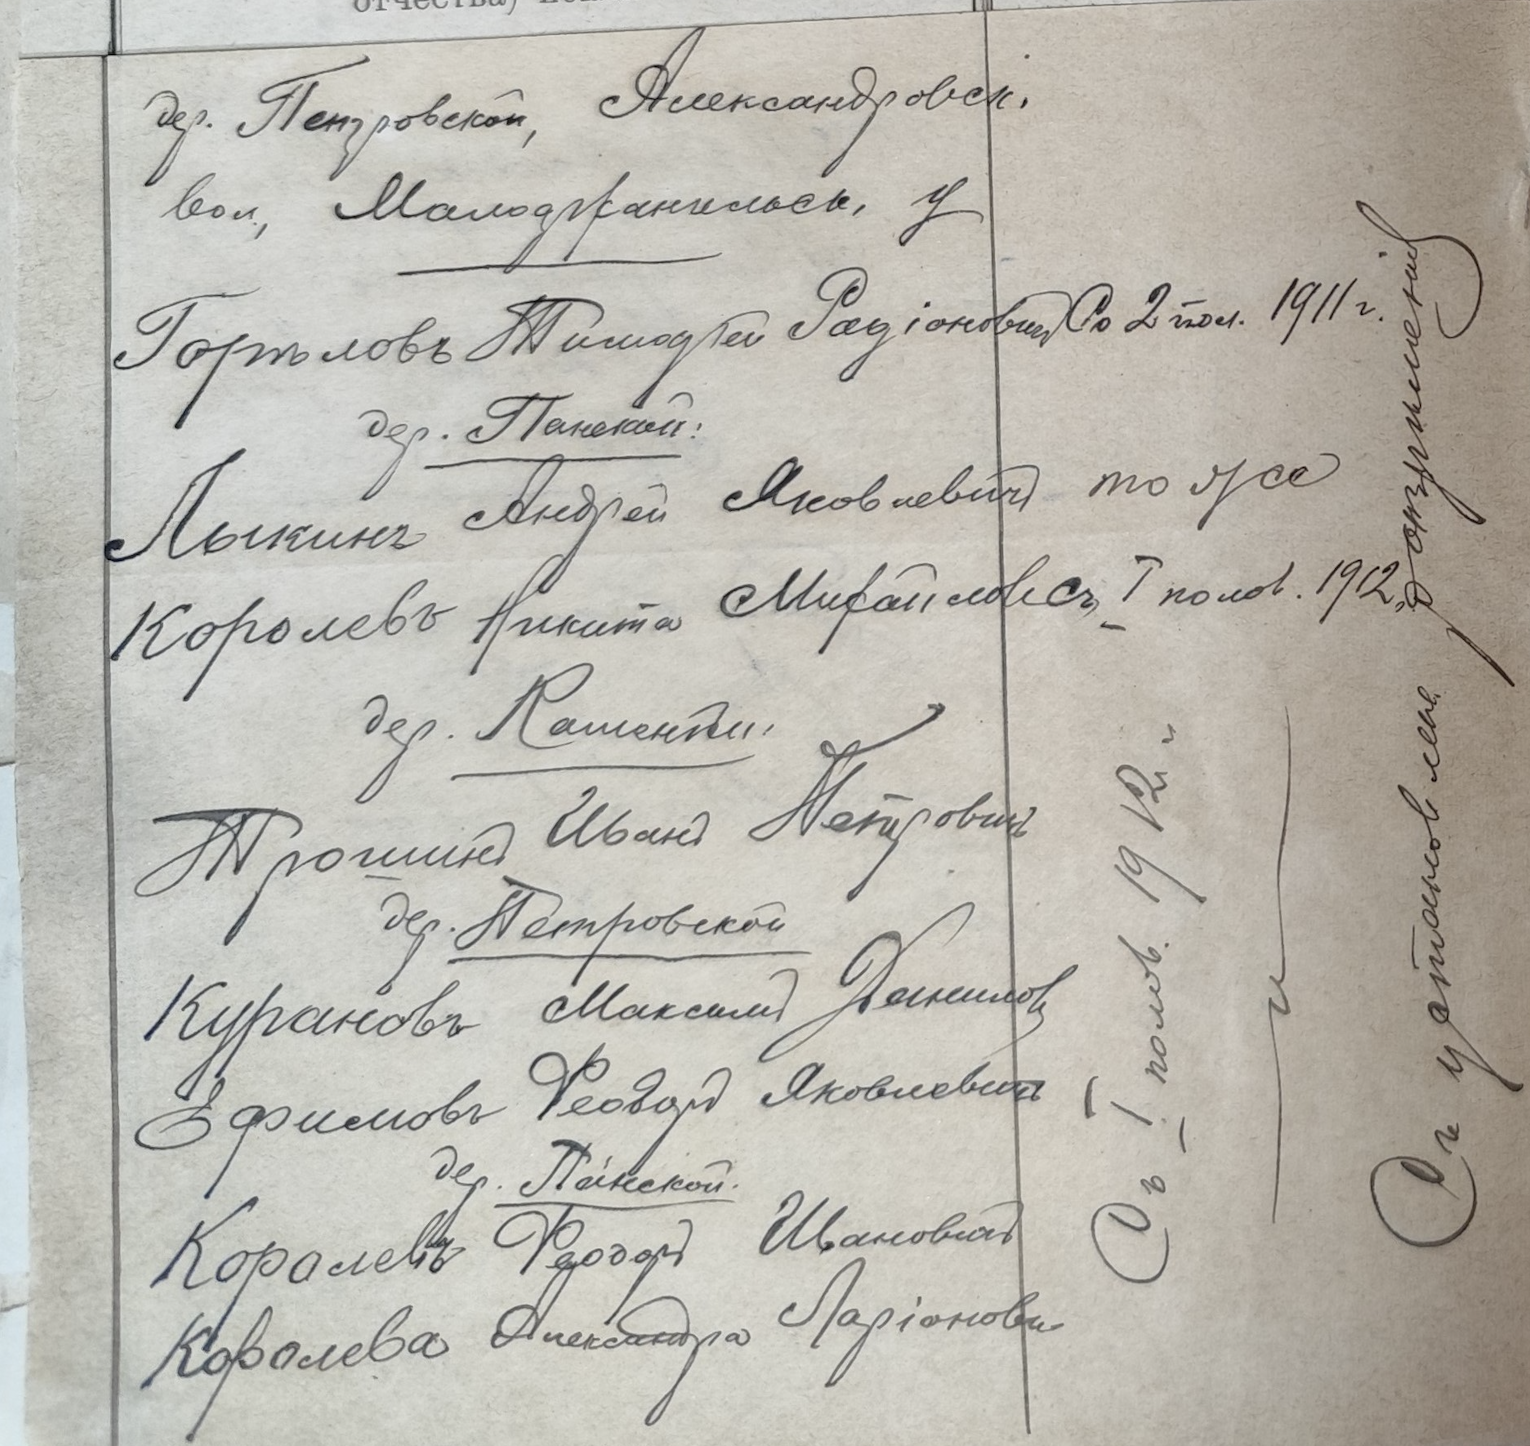 отчества,
дер. Петровской, Александровск.
вол., Малоархангельск. у
Гор ловъ Тимофей Радіоновичъ Со 2 пол. 1911 г.
дер. Панской:
Лыкинъ Андрей Яковлевичъ тоже
Королевъ Никита Михайлов Съ I полов. 1912
дер.
Трошинъ Иванъ Петровичъ
дер. Петровской
Курановъ Максимъ Данилов
Ефимовъ Феодоръ Яковлевичъ
дер. Панской.
Королевъ Феодоръ Ивановичъ
Королева Александра Ларіонови
Съ I полов. 1912 г.
Съ установлен.